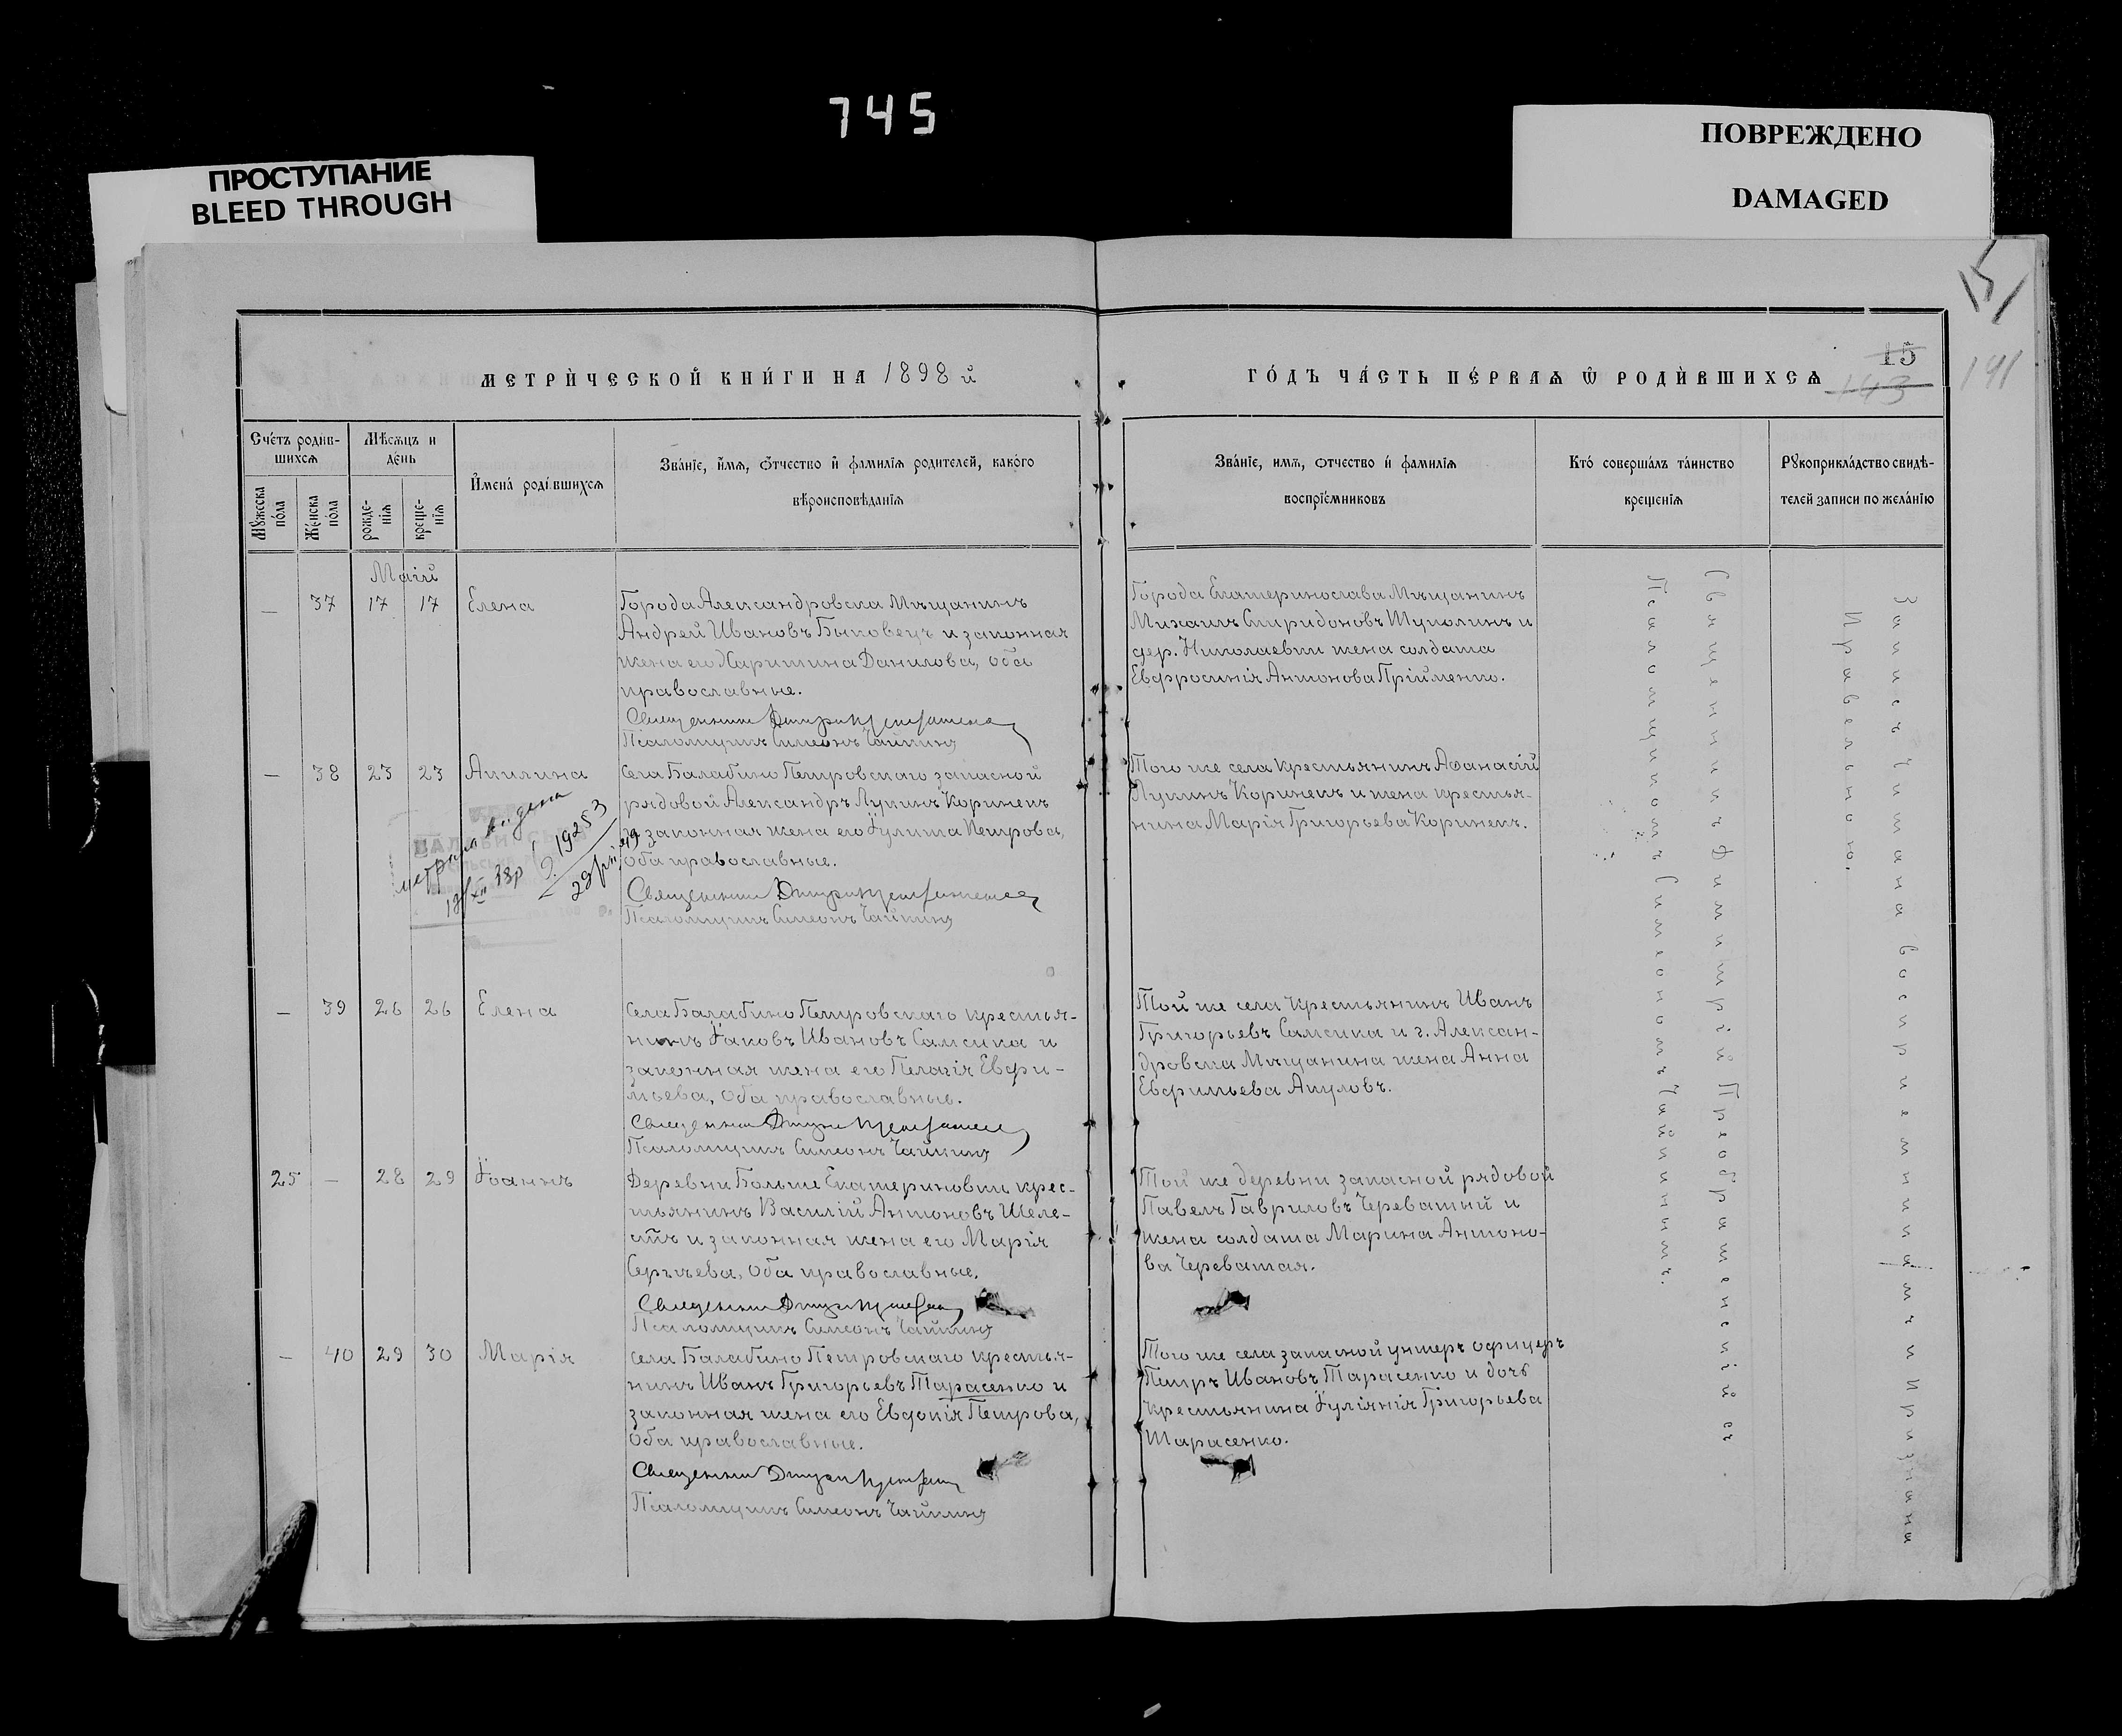 745
ПРОСТУПАНИЕ
BLEED THROUGH
ПОВРЕЖДЕНО
DAMAGED
15
141
МЕТРИЧЕСКОЙ КНИГИ НА 1898 й
ГОДЪ ЧАСТЬ ПЕРВАѦ Ѿ РОДИВШИХСѦ
15
143
Счетъ родив-
шихсѧ
Мѣсѧцъ и
день
Мꙋжеска
пола
Женска
пола
рожде-
нїѧ
креще-
нїѧ
Имена родившихсѧ
Званїе, имѧ, отчество и фамилїѧ родителей, какого
вѣроисповѣданїѧ
Званїе, имѧ, отчество и фамилїѧ
воспрїемниковъ
Кто совершалъ таинство
крещенїѧ
Рꙋкоприкладство свидѣ-
телей записи по желанїю
Маій
— 37 17 17 Елена
Города Александровска Мѣщанинъ
Андрей Ивановъ Быковецъ и законная
жена его Харитина Данилова, оба
православные.
Священникъ Дмитрій Преображенскій
Псаломщикъ Симеонъ Чайкинъ
Города Екатеринослава Мѣщанинъ
Михаилъ Спиридоновъ Шуполинъ и
дер. Николаевки жена солдата
Евфросинія Антонова Пріименко.
— 38 23 23 Акилина
Села Балабино Петровскаго запасной
рядовой Александръ Лукинъ Коринекъ
и законная жена его Іулитта Петрова,
оба православные.
Священникъ Дмитрій Преображенскій
Псаломщикъ Симеонъ Чайкинъ
Того же села крестьянинъ Аѳанасій
Лукинъ Коринекъ и жена крестья-
нина Марія Григорьева Коринекъ.
— 39 26 26 Елена
Села Балабино Петровскаго крестья-
нинъ Іаковъ Ивановъ Самсика и
законная жена его Пелагія Евфи-
мьева, оба православные.
Священникъ Дмитрій Преображенскій
Псаломщикъ Симеонъ Чайкинъ
Той же села крестьянинъ Иванъ
Григорьевъ Самсика и г. Алексан-
дровска Мѣщанина жена Анна
Евфимьева Акуловъ.
25 — 28 29 Іоаннъ
Деревни Больше Екатериновки крес-
тьянинъ Василій Антоновъ Шеле-
стъ и законная жена его Марія
Сергѣева, оба православные.
Священникъ Дмитрій Преображенскій
Псаломщикъ Симеонъ Чайкинъ
Той же деревни запасной рядовой
Павелъ Гавриловъ Череватый и
жена солдата Марина Антоно-
ва Череватая.
— 40 29 30 Марія
Села Балабино Петровскаго крестья-
нинъ Иванъ Григорьевъ Тарасенко и
законная жена его Евдокія Петрова,
оба православные.
Священникъ Дмитрій Преображенскій
Псаломщикъ Симеонъ Чайкинъ
Того же села запасной унтеръ офицеръ
Петръ Ивановъ Тарасенко и дочь
крестьянина Іуліанія Григорьева
Тарасенко.
Священникъ Димитрій Преображенскій съ
Псаломщикомъ Симеономъ Чайкинымъ.
Запись читана воспріемникамъ и признана
правельною.